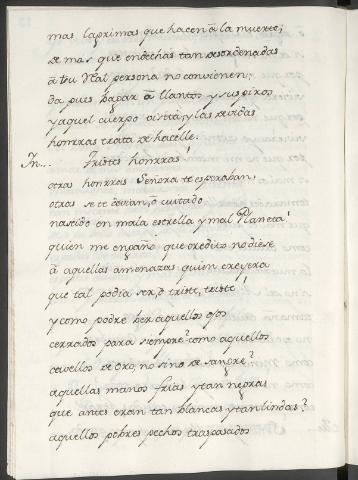 mas lagrimas que hacen â la muerte;
de mas que endechas tan desordenadas
â tu Real persona no convienen.
da pues lugar â llantos y suspiros
y aquel cuerpo asistid, y las devidas
honrras trata de hacelle.
In... Tristes honrras!
otras honrras Señora te esperaban,
otras se te devian, ò cuitado
nascido en mala estrella y mal Planeta!
quien me engañò que credito no diese
à aquellas amenazas quien creyera
que tal podia ser, ò triste, triste!
y como podrè ver aquellos ojos
cerrados para siempre? como aquellos
cavellos de oro, no sino de sangre?
aquellas manos frias y tan negras
que antes eran tan blancas y tan lindas?
aquellos pobres pechos traspasados